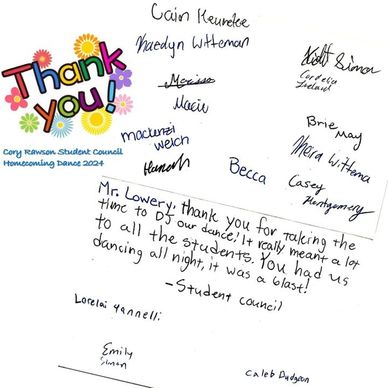 Cain Heundee
Maedyn Witteman
Thank you!
Cory Rawson Student Council
Homecoming Dance 2024
Macie
Mackenzi Welch
Hannah
Becca
Simon
Cordelia Ireland
Brie May
Meira Wittema
Casey Montgomery
Mr. Lowery, thank you for taking the
time to DJ our dance! It really meant a lot
to all the students. You had us
dancing all night, it was a blast!
-Student council
Lorelai Yannelli
Emily Simon
Caleb Dudgeon